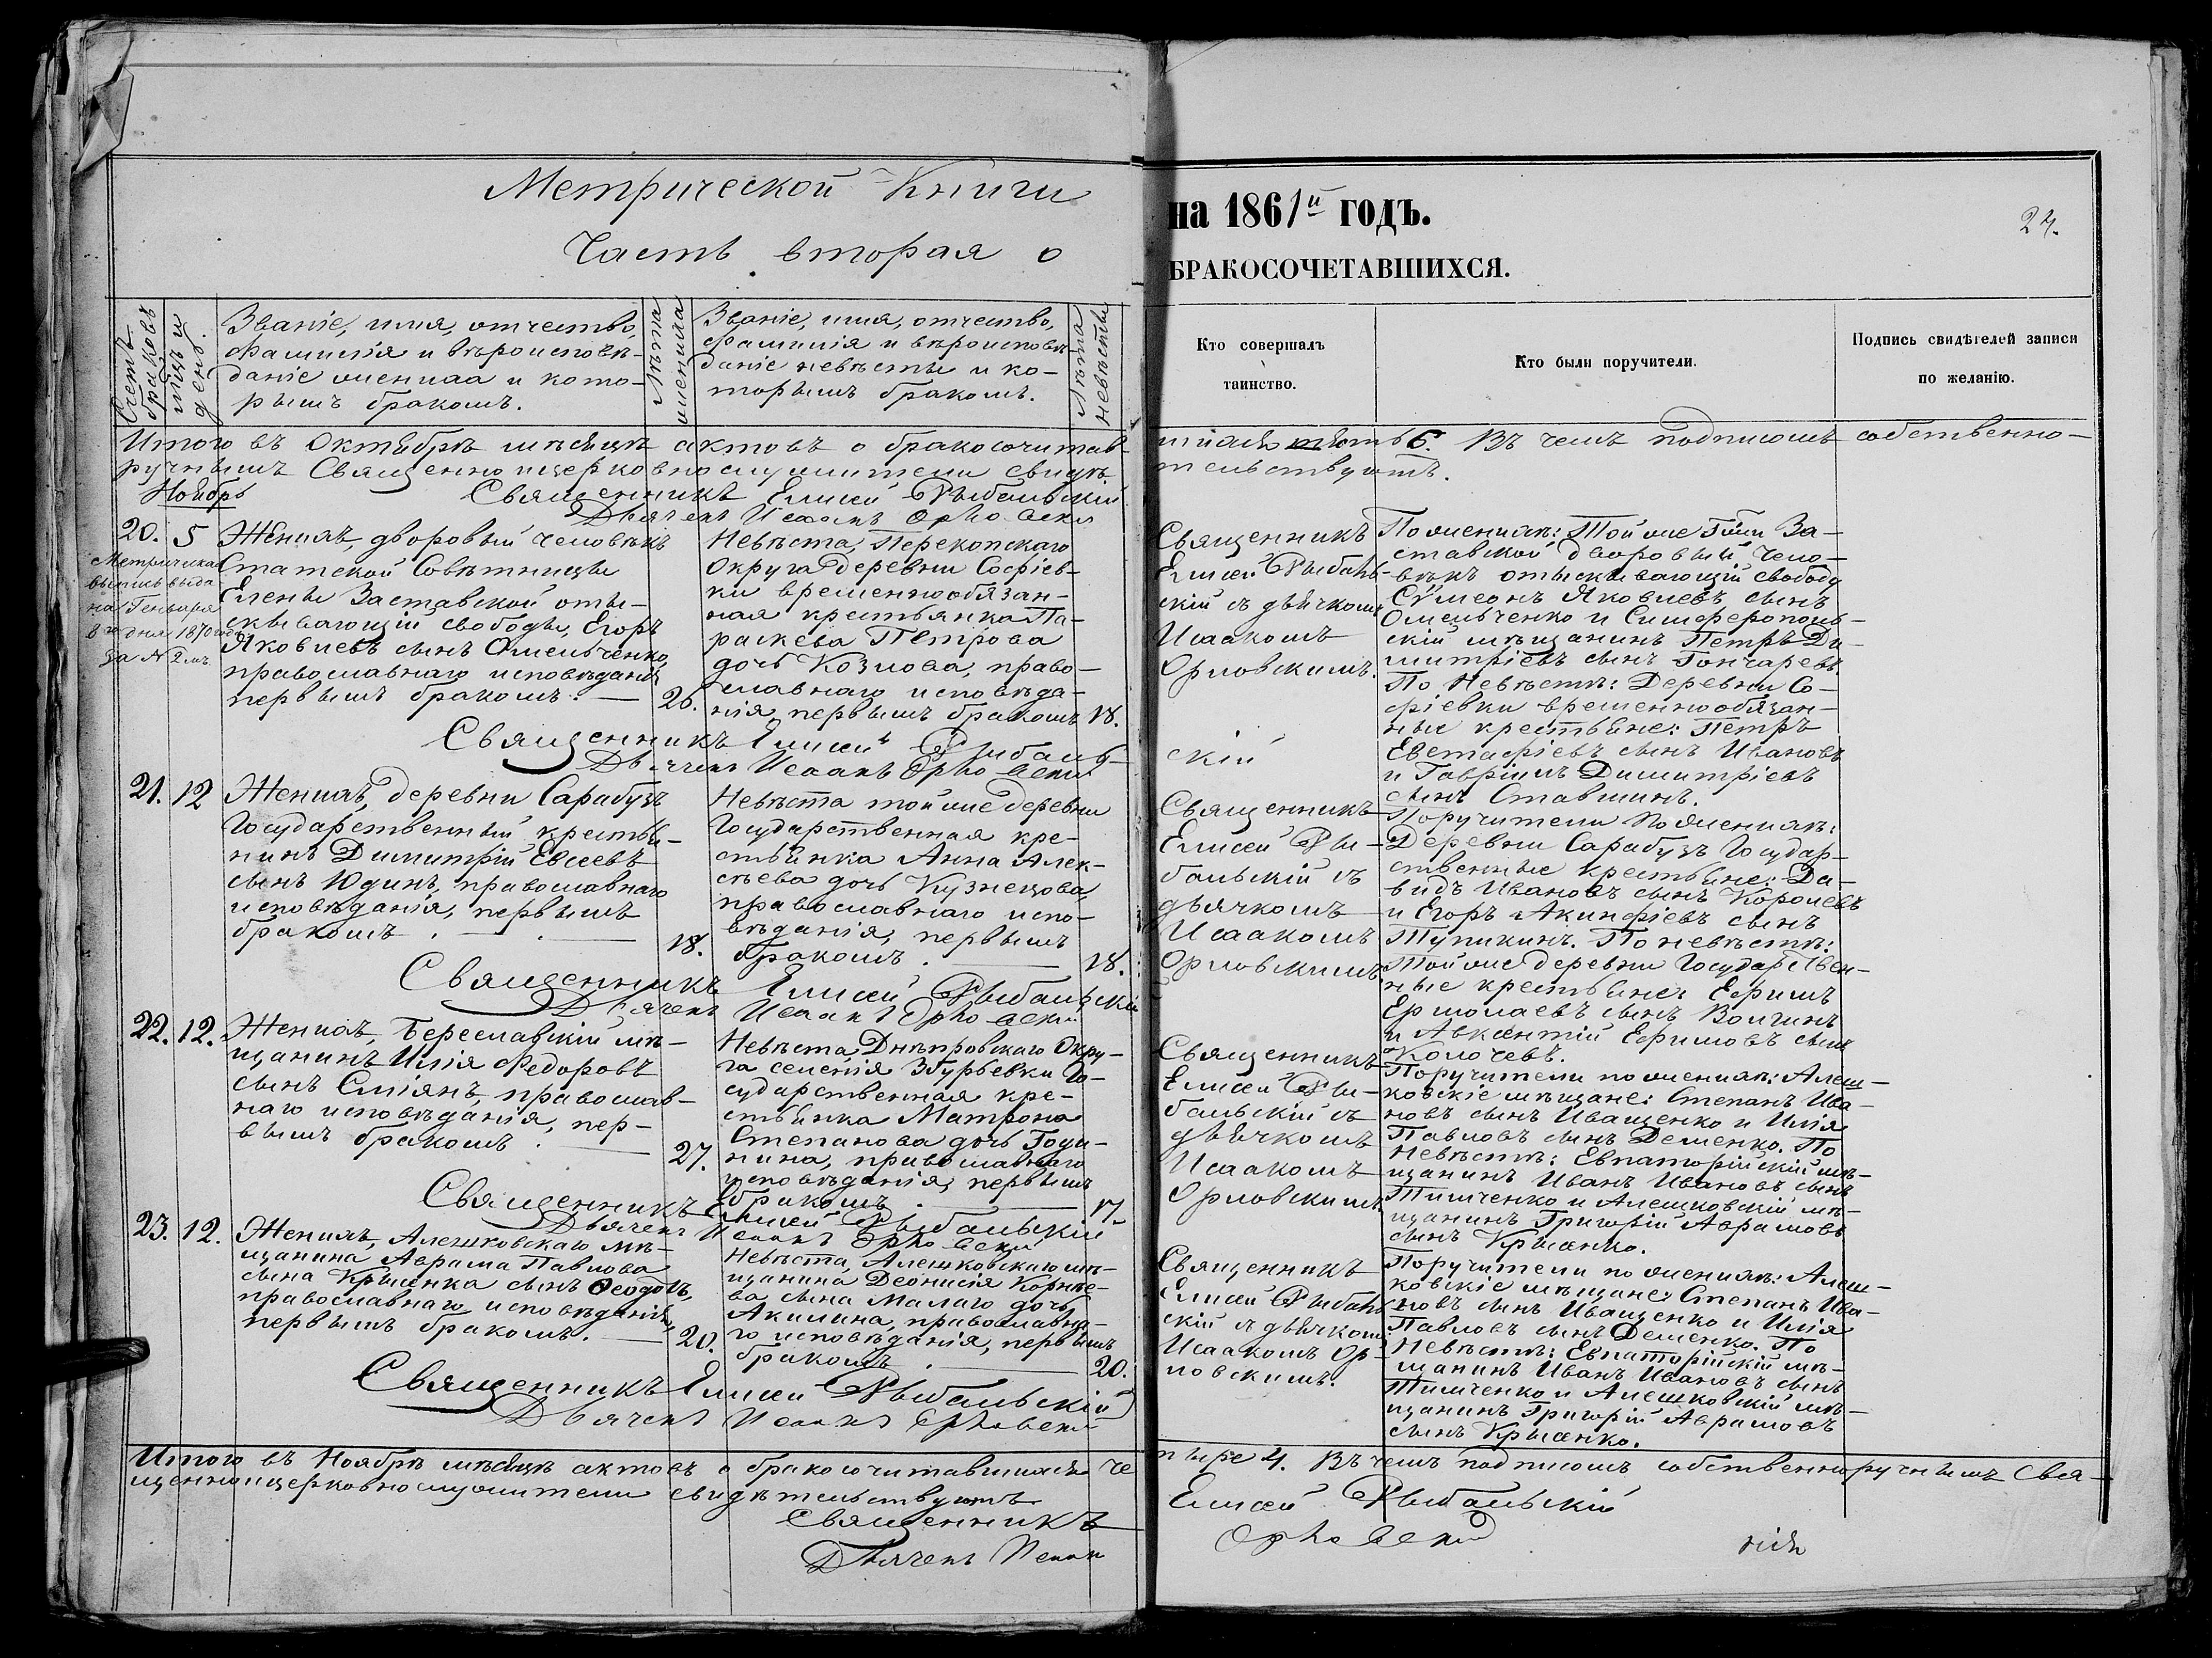 Метрической Книги
Часть вторая о
на 1861й годъ.
БРАКОСОЧЕТАВШИХСЯ.
24.
Счетъ браковъ
мѣсяцъ и день.
Званіе, имя, отчество,
фамилія и вѣроисповѣ-
даніе жениха и кото-
рымъ бракомъ.
Лѣта жениха
Званіе, имя, отчество,
фамилія и вѣроисповѣ-
даніе невѣсты и ко-
торымъ бракомъ.
Лѣта невѣсты
Кто совершалъ
таинство.
Кто были поручители.
Подпись свидѣтелей записи
по желанію.
Итого въ Октябрѣ мѣсяцѣ актовъ о бракосочитав-
шихся шесть 6. Въ чемъ подписомъ собственно-
ручнымъ Священноицерковнослужители свидѣ-
тельствуютъ.
Священникъ Елисей Рыбальскій
Дьячекъ Исаакъ Орловскій
Ноябрь
20. 5
Метрическая
выпись выда
на Генваря
8го дня 1870 года
за № 2мъ
Женихъ, дворовый человѣкъ
Статской Совѣтницы
Елены Заставской оты-
скивающій свободы, Егоръ
Яковлевъ сынъ Омельченко,
православнаго исповѣданія,
первымъ бракомъ. —
26.
Невѣста, Перекопскаго
Округа деревни Софіев-
ки временнообязан-
ная крестьянка Па-
раскева Петрова
дочь Козлова, право-
славнаго исповѣда-
нія, первымъ бракомъ
18.
Священникъ
Елисей Рыбаль-
скій съ дьячкомъ
Исаакомъ
Орловскимъ.
По женихѣ: Той же Гжи За-
ставской дворовый чело-
вѣкъ отыскивающій свободу
Сѵмеонъ Яковлевъ сынъ
Омельченко и Симферополь-
скій мѣщанинъ Петръ Ди-
митріевъ сынъ Гончаревъ.
По Невѣстѣ: Деревни Со-
фіевки временнообязан-
ные крестьяне: Петръ
Евстафіевъ сынъ Ивановъ
и Гавріилъ Димитріевъ
сынъ Ставшинъ.
Священникъ Елисей Рыбаль-
скій
Дьячекъ Исаакъ Орловскій
21. 12
Женихъ, деревни Сарабузъ
Государственный крестья-
нинъ Димитрій Евсеевъ
сынъ Юдинъ, православнаго
исповѣданія, первымъ
бракомъ. —
18.
Невѣста той же деревни
Государственная кре-
стьянка Анна Алек-
сѣева дочь Кузнецова,
православнаго испо-
вѣданія, первымъ
бракомъ. —
18.
Священникъ
Елисей Ры-
бальскій съ
дьячкомъ
Исаакомъ
Орловскимъ.
Поручители по женихѣ:
Деревни Сарабузъ Государ-
ственные крестьяне: Да-
видъ Ивановъ сынъ Королевъ
и Егоръ Акинфіевъ сынъ
Тупикинъ. По невѣстѣ:
Той же деревни Государствен-
ные крестьяне: Ефимъ
Ермолаевъ сынъ Волгинъ
и Авксентій Ефимовъ сынъ
Колочевъ.
Священникъ Елисей Рыбальскій
Дьячекъ Исаакъ Орловскій
22. 12.
Женихъ, Береславскій мѣ-
щанинъ Илія Федоровъ
сынъ Сліянъ, православ-
наго исповѣданія, пер-
вымъ бракомъ. —
27.
Невѣста, Днѣпровскаго Окру-
га селенія Збурьевки Го-
сударственная кре-
стьянка Матрона
Степанова дочь Годи-
нина, православнаго
исповѣданія, первымъ
бракомъ. —
17.
Священникъ
Елисей Ры-
бальскій съ
дьячкомъ
Исаакомъ
Орловскимъ.
Поручители по женихѣ: Алеш-
ковскіе мѣщане: Степанъ Ива-
новъ сынъ Иващенко и Илія
Павловъ сынъ Деменко. По
Невѣстѣ: Евпаторійскій мѣ-
щанинъ Иванъ Ивановъ сынъ
Тимченко и Алешковскій мѣ-
щанинъ Григорій Аврамовъ
сынъ Крысенко.
Священникъ Елисей Рыбальскій
Дьячекъ Исаакъ Орловскій
23. 12.
Женихъ, Алешковскаго мѣ-
щанина Аврама Павлова
сына Крысенка сынъ Ѳеодотъ,
православнаго исповѣданія,
первымъ бракомъ. —
20.
Невѣста, Алешковскаго мѣ-
щанина Деонисія Корнѣе-
ва сына Малаго дочь
Акилина, православна-
го исповѣданія, первымъ
бракомъ. —
20.
Священникъ
Елисей Рыбаль-
скій съ дьячкомъ
Исаакомъ Ор-
ловскимъ.
Поручители по женихѣ: Алеш-
ковскіе мѣщане: Степанъ Ива-
новъ сынъ Иващенко и Илія
Павловъ сынъ Деменко. По
Невѣстѣ: Евпаторійскій мѣ-
щанинъ Иванъ Ивановъ сынъ
Тимченко и Алешковскій мѣ-
щанинъ Григорій Аврамовъ
сынъ Крысенко.
Священникъ Елисей Рыбальскій
Дьячекъ Исаакъ Орловскій
Итого въ Ноябрѣ мѣсяцѣ актовъ о бракосочитавшихся че
тыре 4. Въ чемъ подписомъ собственноручнымъ Свя-
щенноицерковнослужители свидѣтельствуютъ
Священникъ Елисей Рыбальскій
Дьячекъ Исаакъ Орловскій